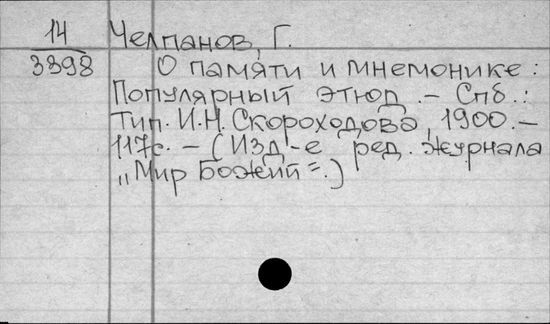 14
3398
Челпанов, Г.
О памяти и мнемонике:
Популярный этюд. - Спб.:
Тип. И.Н. Скороходова, 1900. -
117с. - (Изд-е ред. журнала
„Мир Божий".)